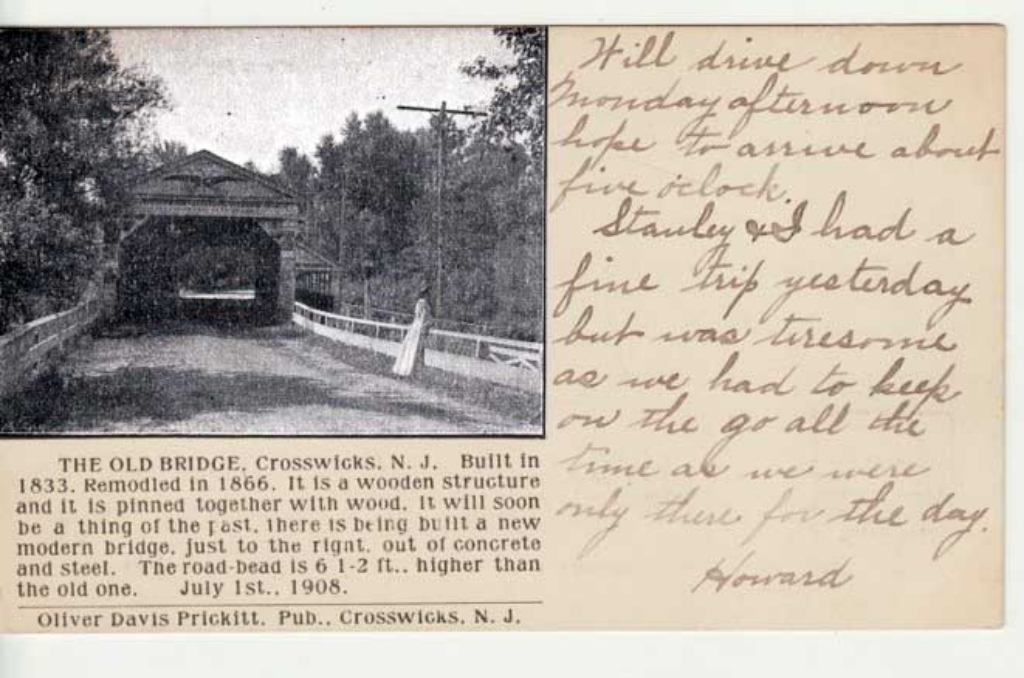 THE OLD BRIDGE, Crosswicks, N. J. Built in
1833. Remodled in 1866. It is a wooden structure
and it is pinned together with wood. It will soon
be a thing of the past, there is being built a new
modern bridge, just to the right, out of concrete
and steel. The road-bead is 6 1-2 ft., higher than
the old one. July 1st., 1908.
Oliver Davis Prickitt, Pub., Crosswicks, N. J.
Will drive down
Monday afternoon
hope to arrive about
five o'clock.
Stanley & I had a
fine trip yesterday
but was tiresome
as we had to keep
on the go all the
time as we were
only there for the day.
Howard